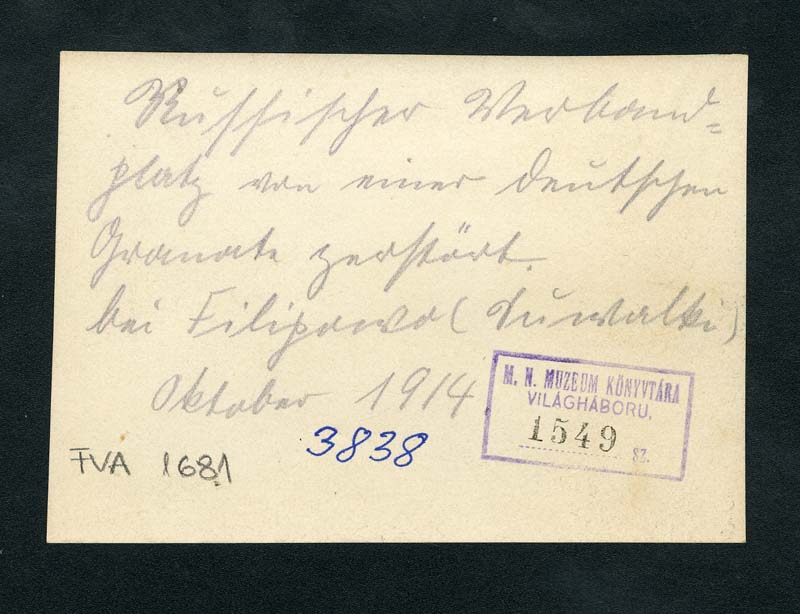 Russischer Verband=
platz von einer deutschen
Granate zerstört.
bei Filipowo (Suwalki)
Oktober 1914
3838
FVA 1681
M. N. MUZEUM KÖNYVTÁRA
VILÁGHÁBORU,
1549 sz.